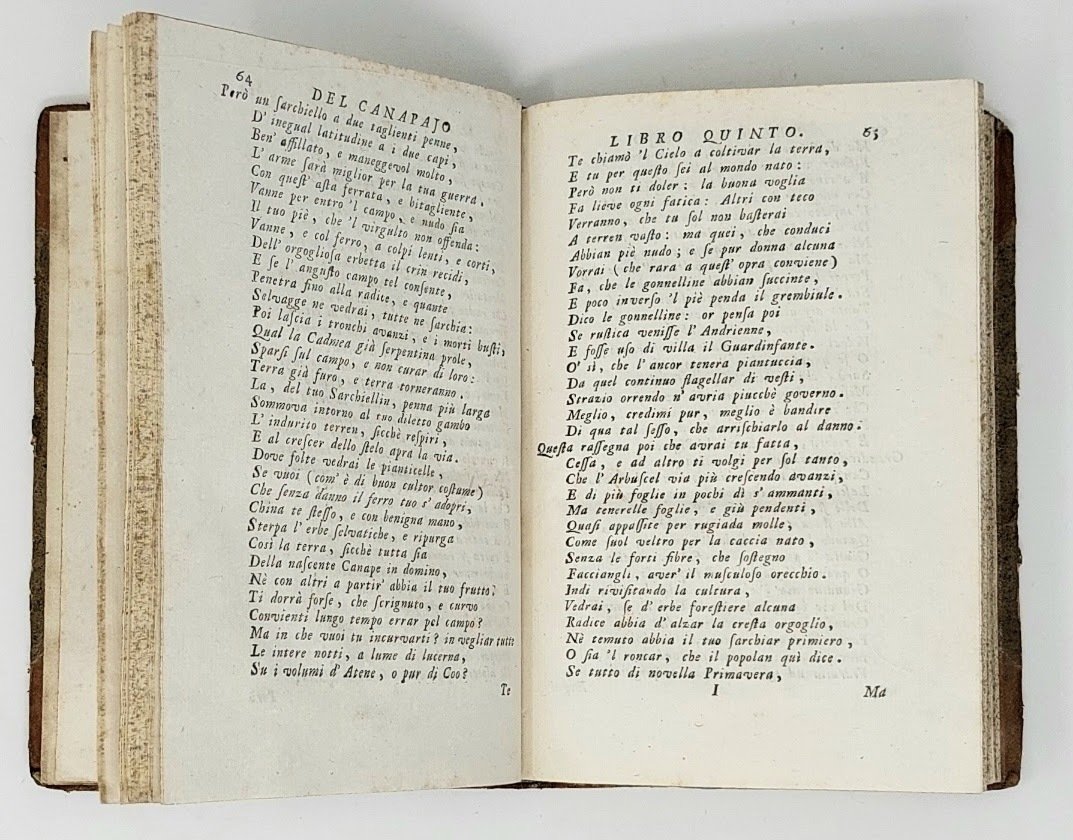 64
DEL CANAPAJO
Però un ſarchiello a due taglienti penne,
D' inegual latitudine a i due capi,
Ben' affilato, e maneggevol molto,
L' arme ſarà miglior per la tua guerra.
Con queſt' aſta ferrata, e bitagliente,
Vanne per entro 'l campo, e nudo ſia
Il tuo piè, che 'l virgulto non offenda:
Vanne, e col ferro, a colpi lenti, e corti,
Dell' orgoglioſa erbetta il crin recidi,
E ſe l' anguſto campo tel conſente,
Penetra fino alla radice, e quante
Selvagge ne vedrai, tutte ne ſarchia:
Poi laſcia i tronchi avanzi, e i morti buſti,
Qual la Cadmea già ſerpentina prole,
Sparſi ſul campo, e non curar di loro:
Terra già furo, e terra torneranno.
La, del tuo Sarchiellin, penna più larga
Sommova intorno al tuo diletto gambo
L' indurito terren, ſicchè reſpiri,
E al creſcer dello ſtelo apra la via.
Dove folte vedrai le pianticelle,
Se vuoi (com' è di buon cultor coſtume)
Che ſenza danno il ferro tuo s' adopri,
China te ſteſſo, e con benigna mano,
Sterpa l' erbe ſelvatiche, e ripurga
Così la terra, ſicchè tutta ſia
Della naſcente Canape in domino,
Nè con altri a partir' abbia il tuo frutto.
Ti dorrà forſe, che ſcrignuto, e curvo
Convienti lungo tempo errar pel campo?
Ma in che vuoi tu incurvarti? in vegliar tutte
Le intere notti, a lume di lucerna,
Su i volumi d' Atene, o pur di Coo?
Te
LIBRO QUINTO.
65
Te chiamò 'l Cielo a coltivar la terra,
E tu per queſto ſei al mondo nato:
Però non ti doler: la buona voglia
Fa lieve ogni fatica: Altri con teco
Verranno, che tu ſol non baſterai
A terren vaſto: ma quei, che conduci
Abbian piè nudo; e ſe pur donna alcuna
Vorrai (che rara a queſt' opra conviene)
Fa, che le gonnelline abbian ſuccinte,
E poco inverſo 'l piè penda il grembiule.
Dico le gonnelline: or penſa poi
Se ruſtica veniſſe l' Andrienne,
E foſſe uſo di villa il Guardinfante.
O' sì, che l' ancor tenera piantuccia,
Da quel continuo flagellar di veſti,
Strazio orrendo n' avria piucchè governo.
Meglio, credimi pur, meglio è bandire
Di qua tal ſeſſo, che arriſchiarlo al danno.
Queſta raſſegna poi che avrai tu fatta,
Ceſſa, e ad altro ti volgi per ſol tanto,
Che l' Arbuſcel via più creſcendo avanzi,
E di più foglie in pochi dì s' ammanti,
Ma tenerelle foglie, e giù pendenti,
Quaſi appaſſite per rugiada molle,
Come ſuol veltro per la caccia nato,
Senza le forti fibre, che ſoſtegno
Facciangli, aver' il muſculoſo orecchio.
Indi riviſitando la cultura,
Vedrai, ſe d' erbe foreſtiere alcuna
Radice abbia d' alzar la creſta orgoglio,
Nè temuto abbia il tuo ſarchiar primiero,
O ſia 'l roncar, che il popolan quì dice.
Se tutto di novella Primavera,
I
Ma